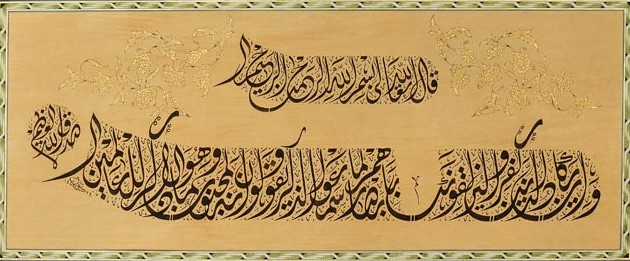 قال الله تعالى بسم الله الرحمن الرحيم
وإن يكاد الذين كفروا ليزلقونك بأبصارهم لما سمعوا الذكر ويقولون إنه لمجنون وما هو إلا ذكر للعالمين
صدق الله العظيم